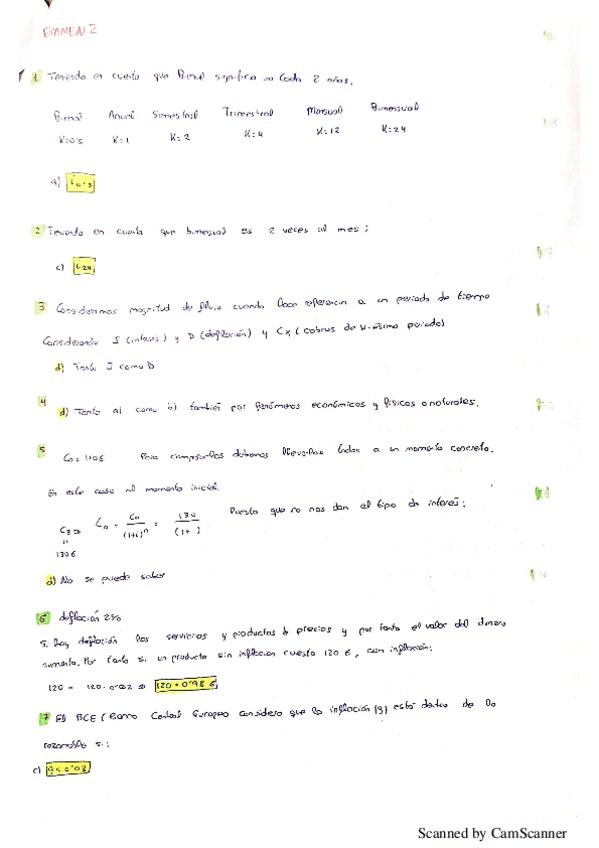 EXAMEN 2
1 Teniendo en cuenta que Bienal significa cada 2 años.
Bienal Anual Semestral Trimestral Mensual Bimensual
K=0'5 K=1 K=2 K=4 K=12 K=24
a) i0'5
2 Teniendo en cuenta que bimensual es 2 veces al mes:
c) i24
3 Consideramos magnitud de flujo cuando hace referencia a un periodo de tiempo
Considerando I (interés) y D (deflación) y CK (cobros de K-ésimo periodo)
d) Tanto I como D
4 d) Tanto a) como b) también por fenómenos económicos y físicos o naturales.
5 C0 = 110€ Para compararlos debemos llevarlos todos a un momento concreto.
En este caso al momento inicial.
C3 => C0 = Cn/(1+i)^n = 130/(1+ ) Puesto que no nos dan el tipo de interés:
130€
d) No se puede saber
6 deflación 2%
Si hay deflación los servicios y productos precios y por tanto el valor del dinero
aumenta. Por tanto si un producto sin inflación cuesta 120€, con inflación:
120 - 120·0'02 => 120·0'98 €
7 El BCE (Banco Central Europeo considera que la inflación (g) está dentro de lo
razonable si:
c) g<0'02
Scanned by CamScanner